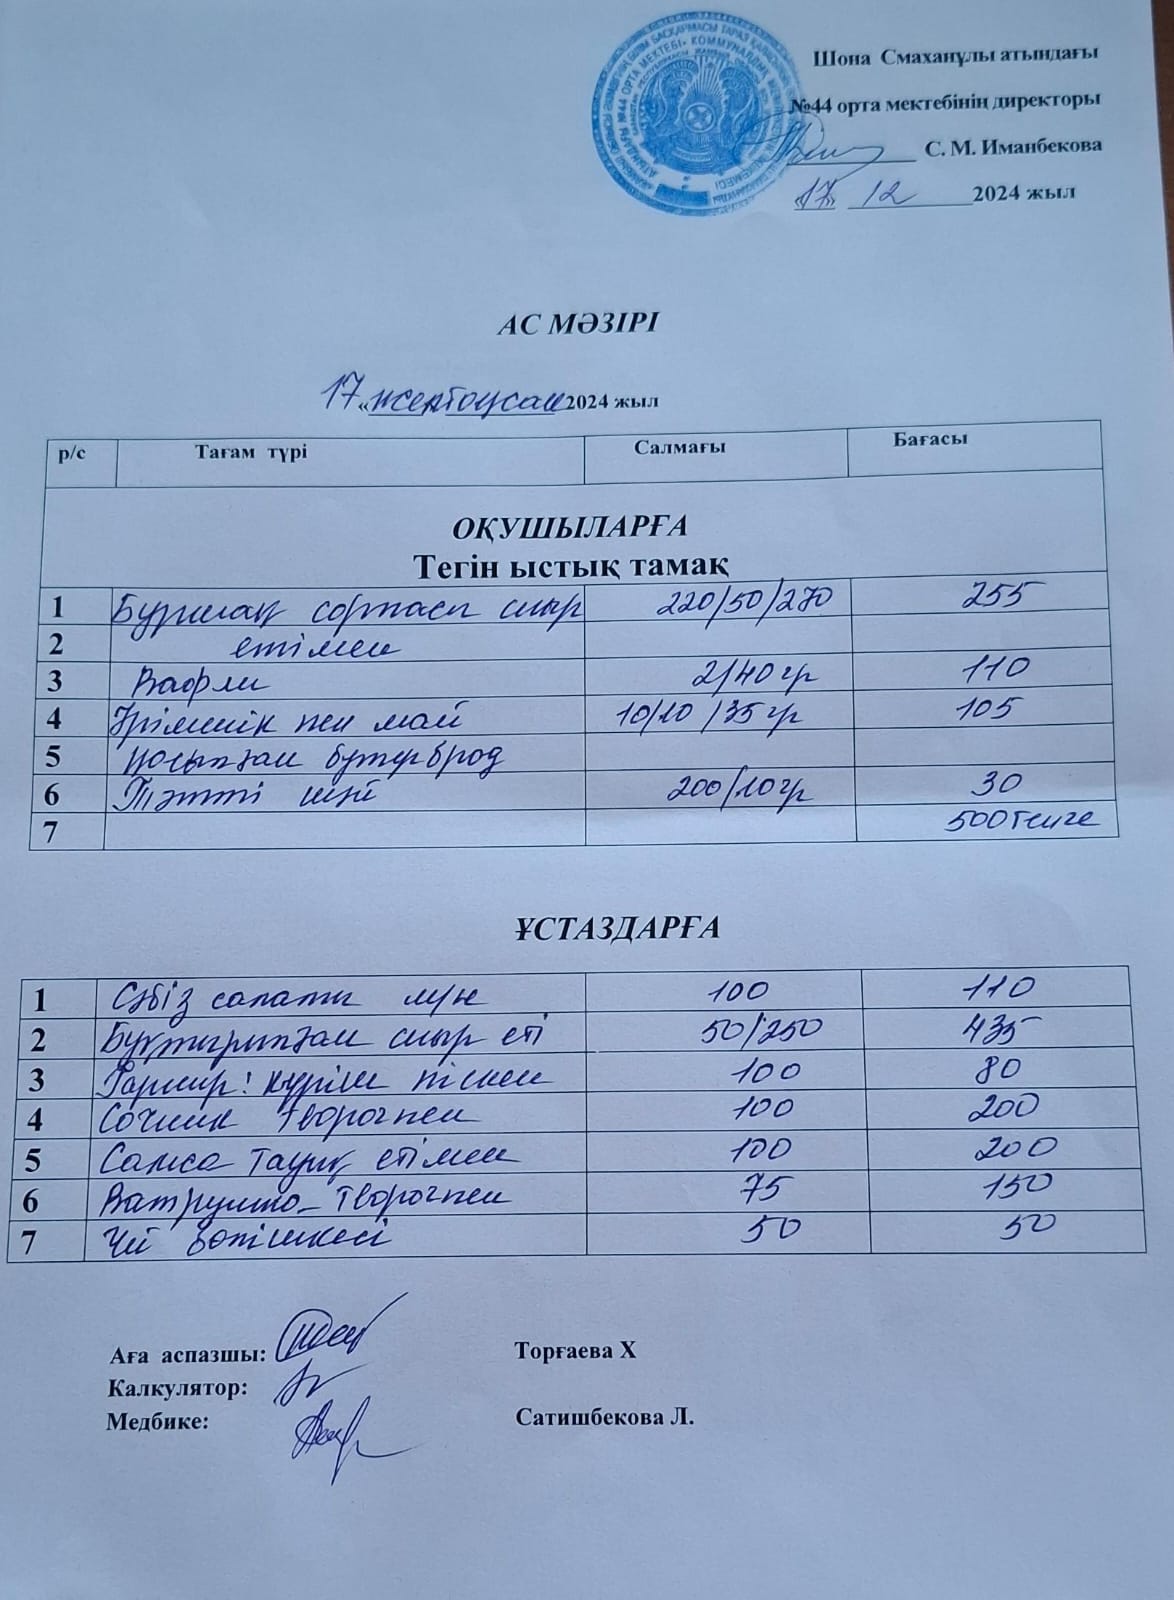 Шона Смаханұлы атындағы
№44 орта мектебінің директоры
С. М. Иманбекова
«17» 12 2024 жыл
АС МӘЗІРІ
17 «желтоқсан 2024 жыл
р/с Тағам түрі Салмағы Бағасы
ОҚУШЫЛАРҒА
Тегін ыстық тамақ
1 Бұршақ сорпасы сиыр 220/50/270 255
2 етімен
3 Вафли 2/40 гр 110
4 Ірімшік пен май 10/10 /35 гр 105
5 қосылған бутерброд
6 Тәтті шәй 200/10 гр 30
7 500 тенге
ҰСТАЗДАРҒА
1 Сәбіз салаты 100 110
2 Бұқтырылған сиыр еті 50/250 435
3 Гарнир: күріш піскен 100 80
4 Сочник творогпен 100 200
5 Самса тауық етімен 100 200
6 Ватрушка творогпен 75 150
7 Үй бөлішкесі 50 50
Аға аспазшы: Торғаева Х
Калкулятор:
Медбике: Сатишбекова Л.